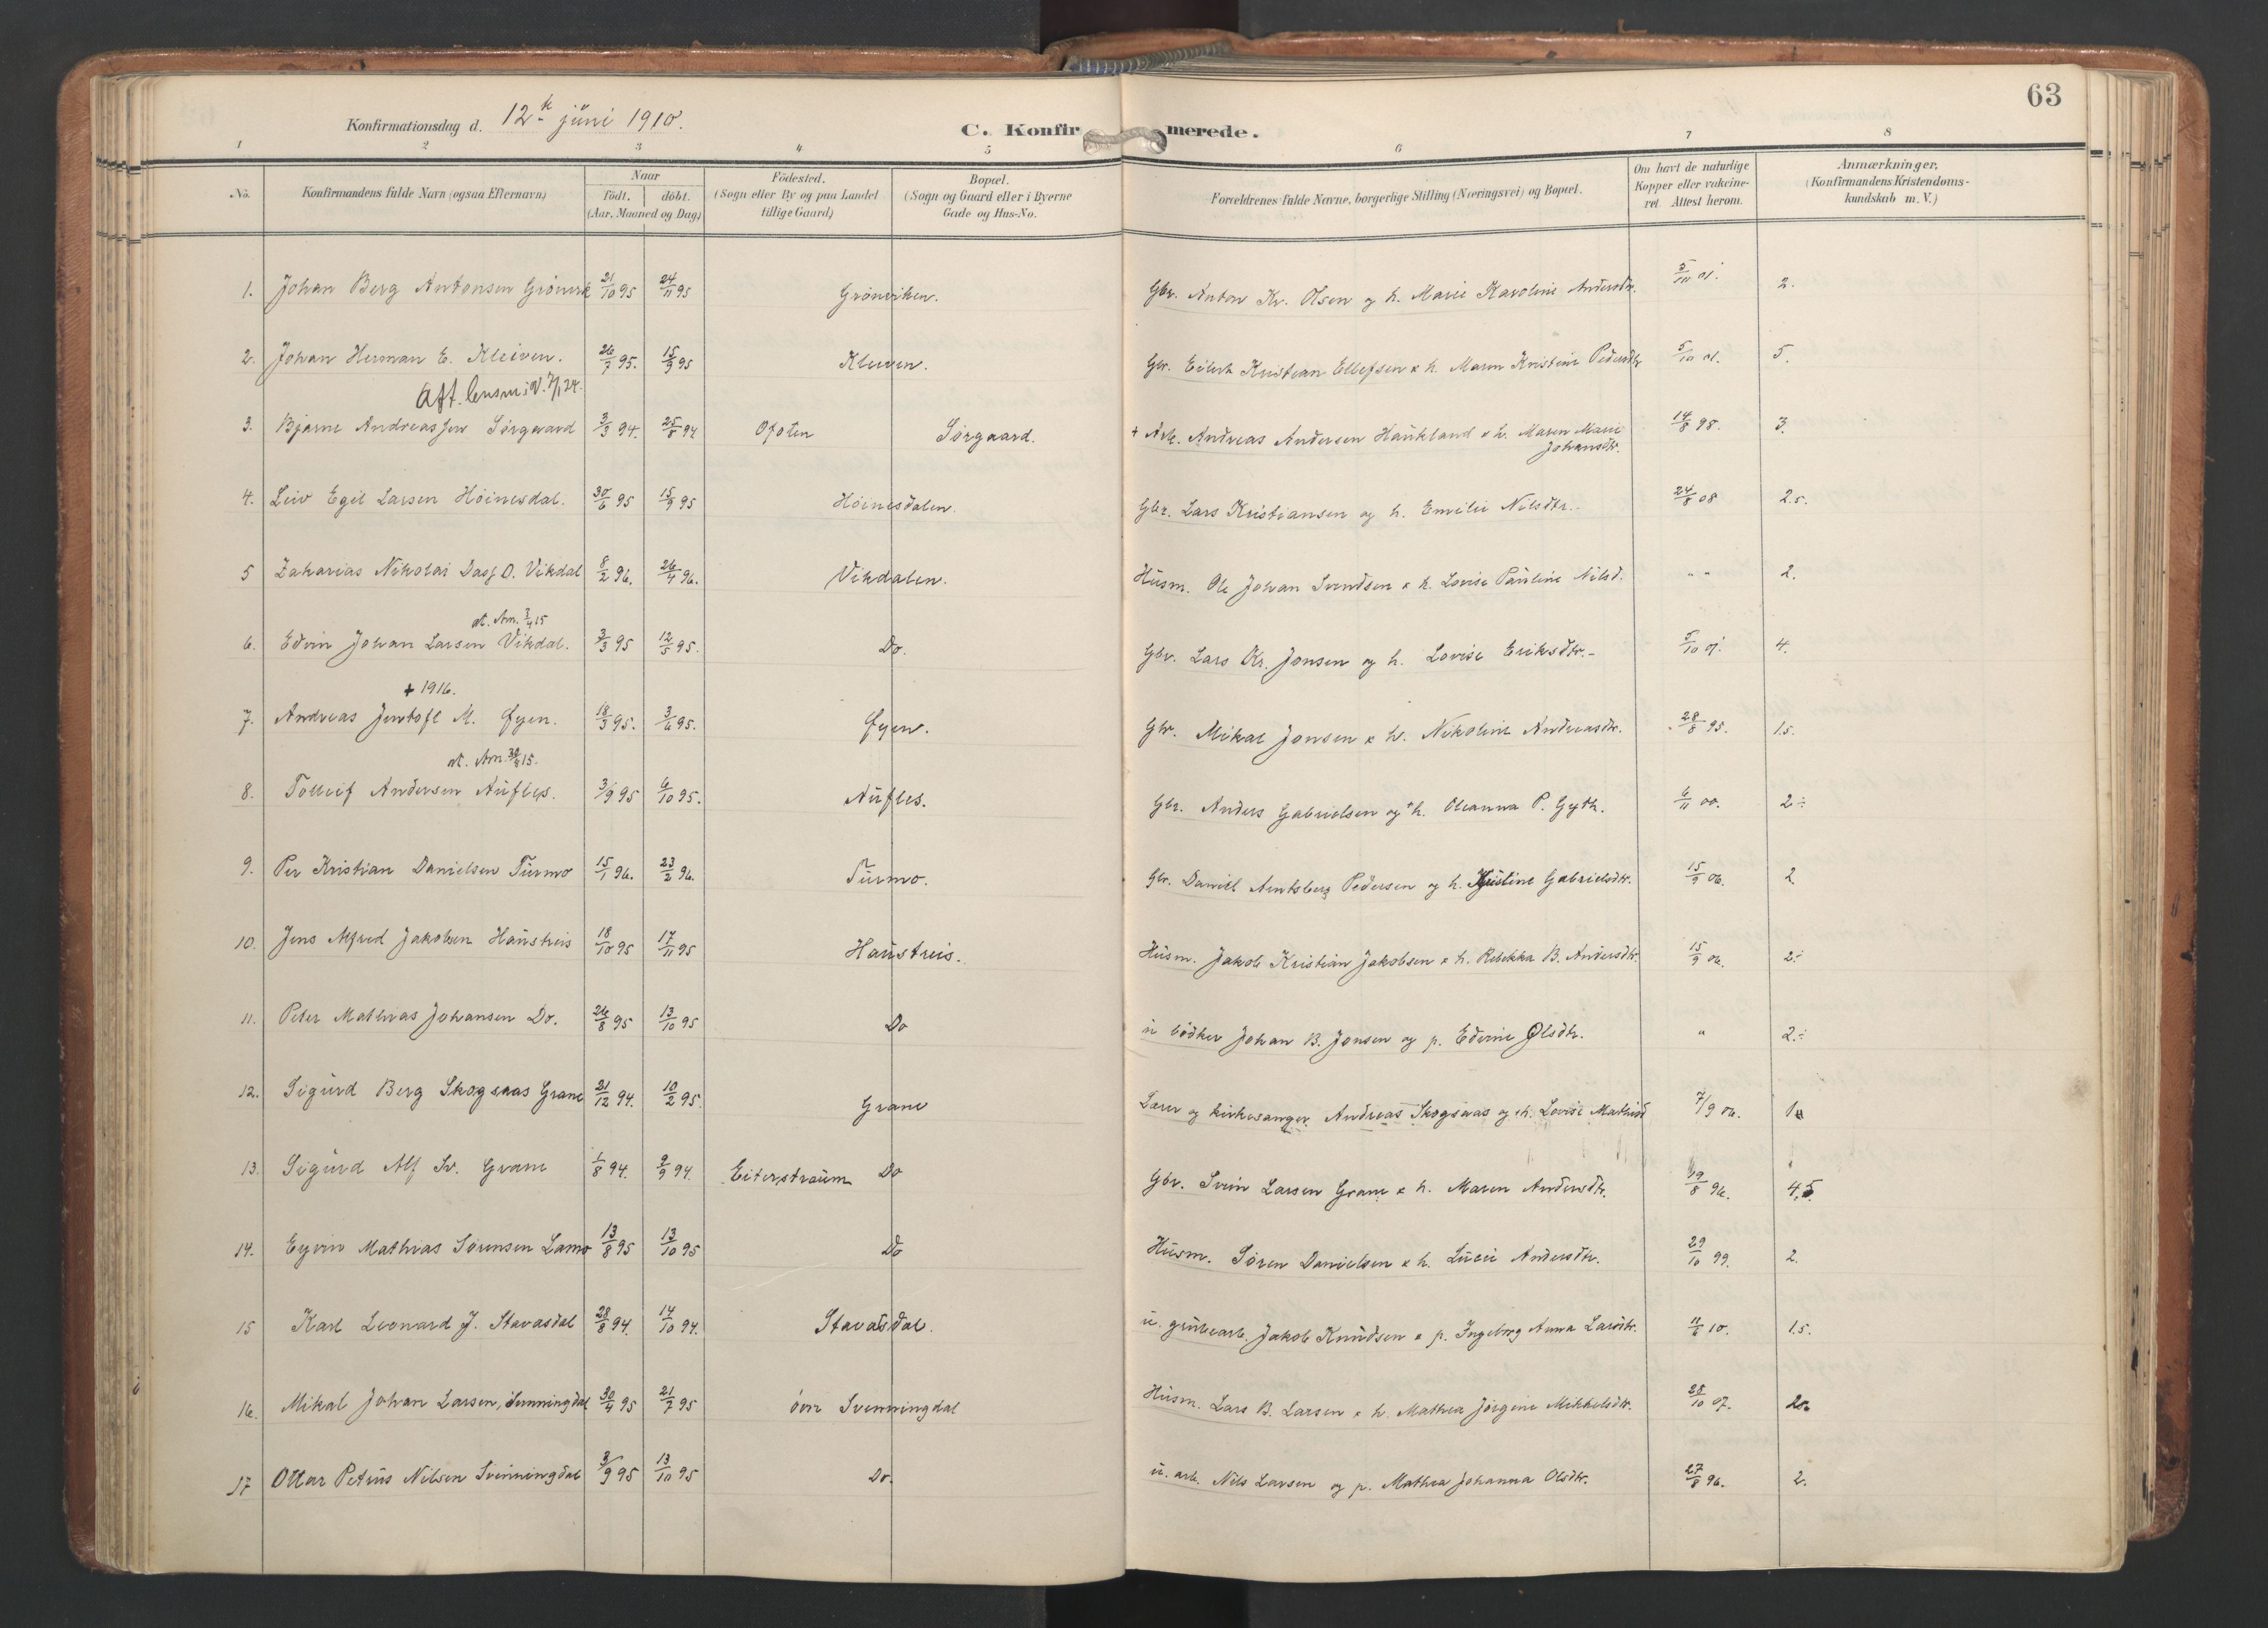 63
Konfirmationsdag d. 12te juni 1910.
C. Konfirmerede.
1 2 3 4 5 6 7 8
No.
Konfirmandens fulde Navn (ogsaa Efternavn)
Naar
födt. döbt.
(Aar, Maaned og Dag)
Födested.
(Sogn eller By og paa Landet
tillige Gaard)
Bopæl.
(Sogn og Gaard eller i Byerne
Gade og Hus-No.
Forældrenes fulde Navne, borgerlige Stilling (Næringsvei) og Bopæl.
Om havt de naturlige
Kopper eller vakcine-
ret. Attest herom.
Anmærkninger,
(Konfirmandens Kristendoms-
kundskab m. V.)
1. Johan Berg Antonsen 21/10 95 24/11 95 Grönviken. Gbr. Anton Kr. Olsen og h. Marie Karoline Andersdtr. 01. 2.
2. Johan Herman E. Kleiven. 26/7 95. 15/9 95 Kleiven. Gbr. Eilert Kristian Ellefsen & h. Maren Kristine Pedersdtr 5/10 01. 5.
Att.
3. Bjarne Andreassen Sörgaard 3/3 94. 25/8 94 Ofoten Sörgaard. + Arb. Andreas Andersen Haukland & h. Maren Marie
Johansdtr. 14/8 98. 3.
4. Leiv Egil Larsen Höinesdal. 30/6 95 15/9 95 Höinesdalen. Gbr. Lars Kristiansen og h. Emilie Nilsdtr. 24/8 08 2.5.
5 Zakarias Nikolai O. Vikdal 8/2 96. 26/4 96. Vikdalen. Husm. Ole Johan Svendsen & h. Lovise Pauline Nilsd. " " 2.
at. Am. 3/4 15
6. Edvin Johan Larsen Vikdal. 3/3 95 12/5 95. Do. Gbr. Lars Kr. Jonsen og h. Lovise Eriksdtr. 4.
+ 1916.
7. Andreas Jentoft M. Öyen. 18/3 95. 3/6 95. Öyen. Gbr. Mikal Jonsen & h. Nikoline Andreasdtr. 28/8 95. 1.5.
at. Am. 15.
8. Tolleif Andersen Aufles. 3/9 95 6/10 95. Aufles. Gbr. Anders Gabrielsen og + h. Oleanna P. Gyth. 6/11 00. 2÷
9. Per Kristian Danielsen Turmo 15/1 96. 23/2 96. Turmo. Gbr. Daniel Amtsberg Pedersen og h. Kristine Gabrielsdtr. 15/9 06. 2.
10. Jens Alfred Jakobsen Haustreis 18/10 95 17/11 95 Haustreis. Husm. Jakob Kristian Jakobsen & h. Rebekka B. Andersdtr. 15/9 06. 2÷
11. Peter Mathias Johansen Do. 26/8 95 13/10 95 Do u bödker Johan B. Jonsen og p. Edvine Olsdtr. " 2÷
12. Sigurd Berg Skogsaas Grane 21/12 94. 10/2 95. Grane Lærer og kirkesanger Andreas Skogsaas og h. Lovise Mathisd 7/9 06.
13. Sigurd Alf Sv. Grane 1/8 94. 9/9 94. Eiterstraum Do Gbr. Svein Larsen Grane & h. Maren Andersdtr. 96. 4,5.
14. Eyvin Mathias Sörensen Lamo 13/8 95 13/10 95 Do Husm. Sören Danielsen & h. Lucie Andersdtr. 29/10 99. 2.
15 Karl Leonard J. Stavasdal 28/8 94. 14/10 94. Stavasdal. u. grubearb. Jakob Knudsen & p. Ingeborg Anna Larsdtr. 11/6 10. 1.5.
16. Mikal Johan Larsen, Svenningdal 30/4 95 21/7 95 övre Svenningdal Husm. Lars B. Larsen & h. Mathea Jörgine Mikkelsdtr. 28/10 07.
17 Ottar Petrus Nilsen Svenningdal 3/9 95 13/10 95 Do. u. arb. Nils Larsen og p. Mathea Johanna Olsdtr. 27/8 96. 2.